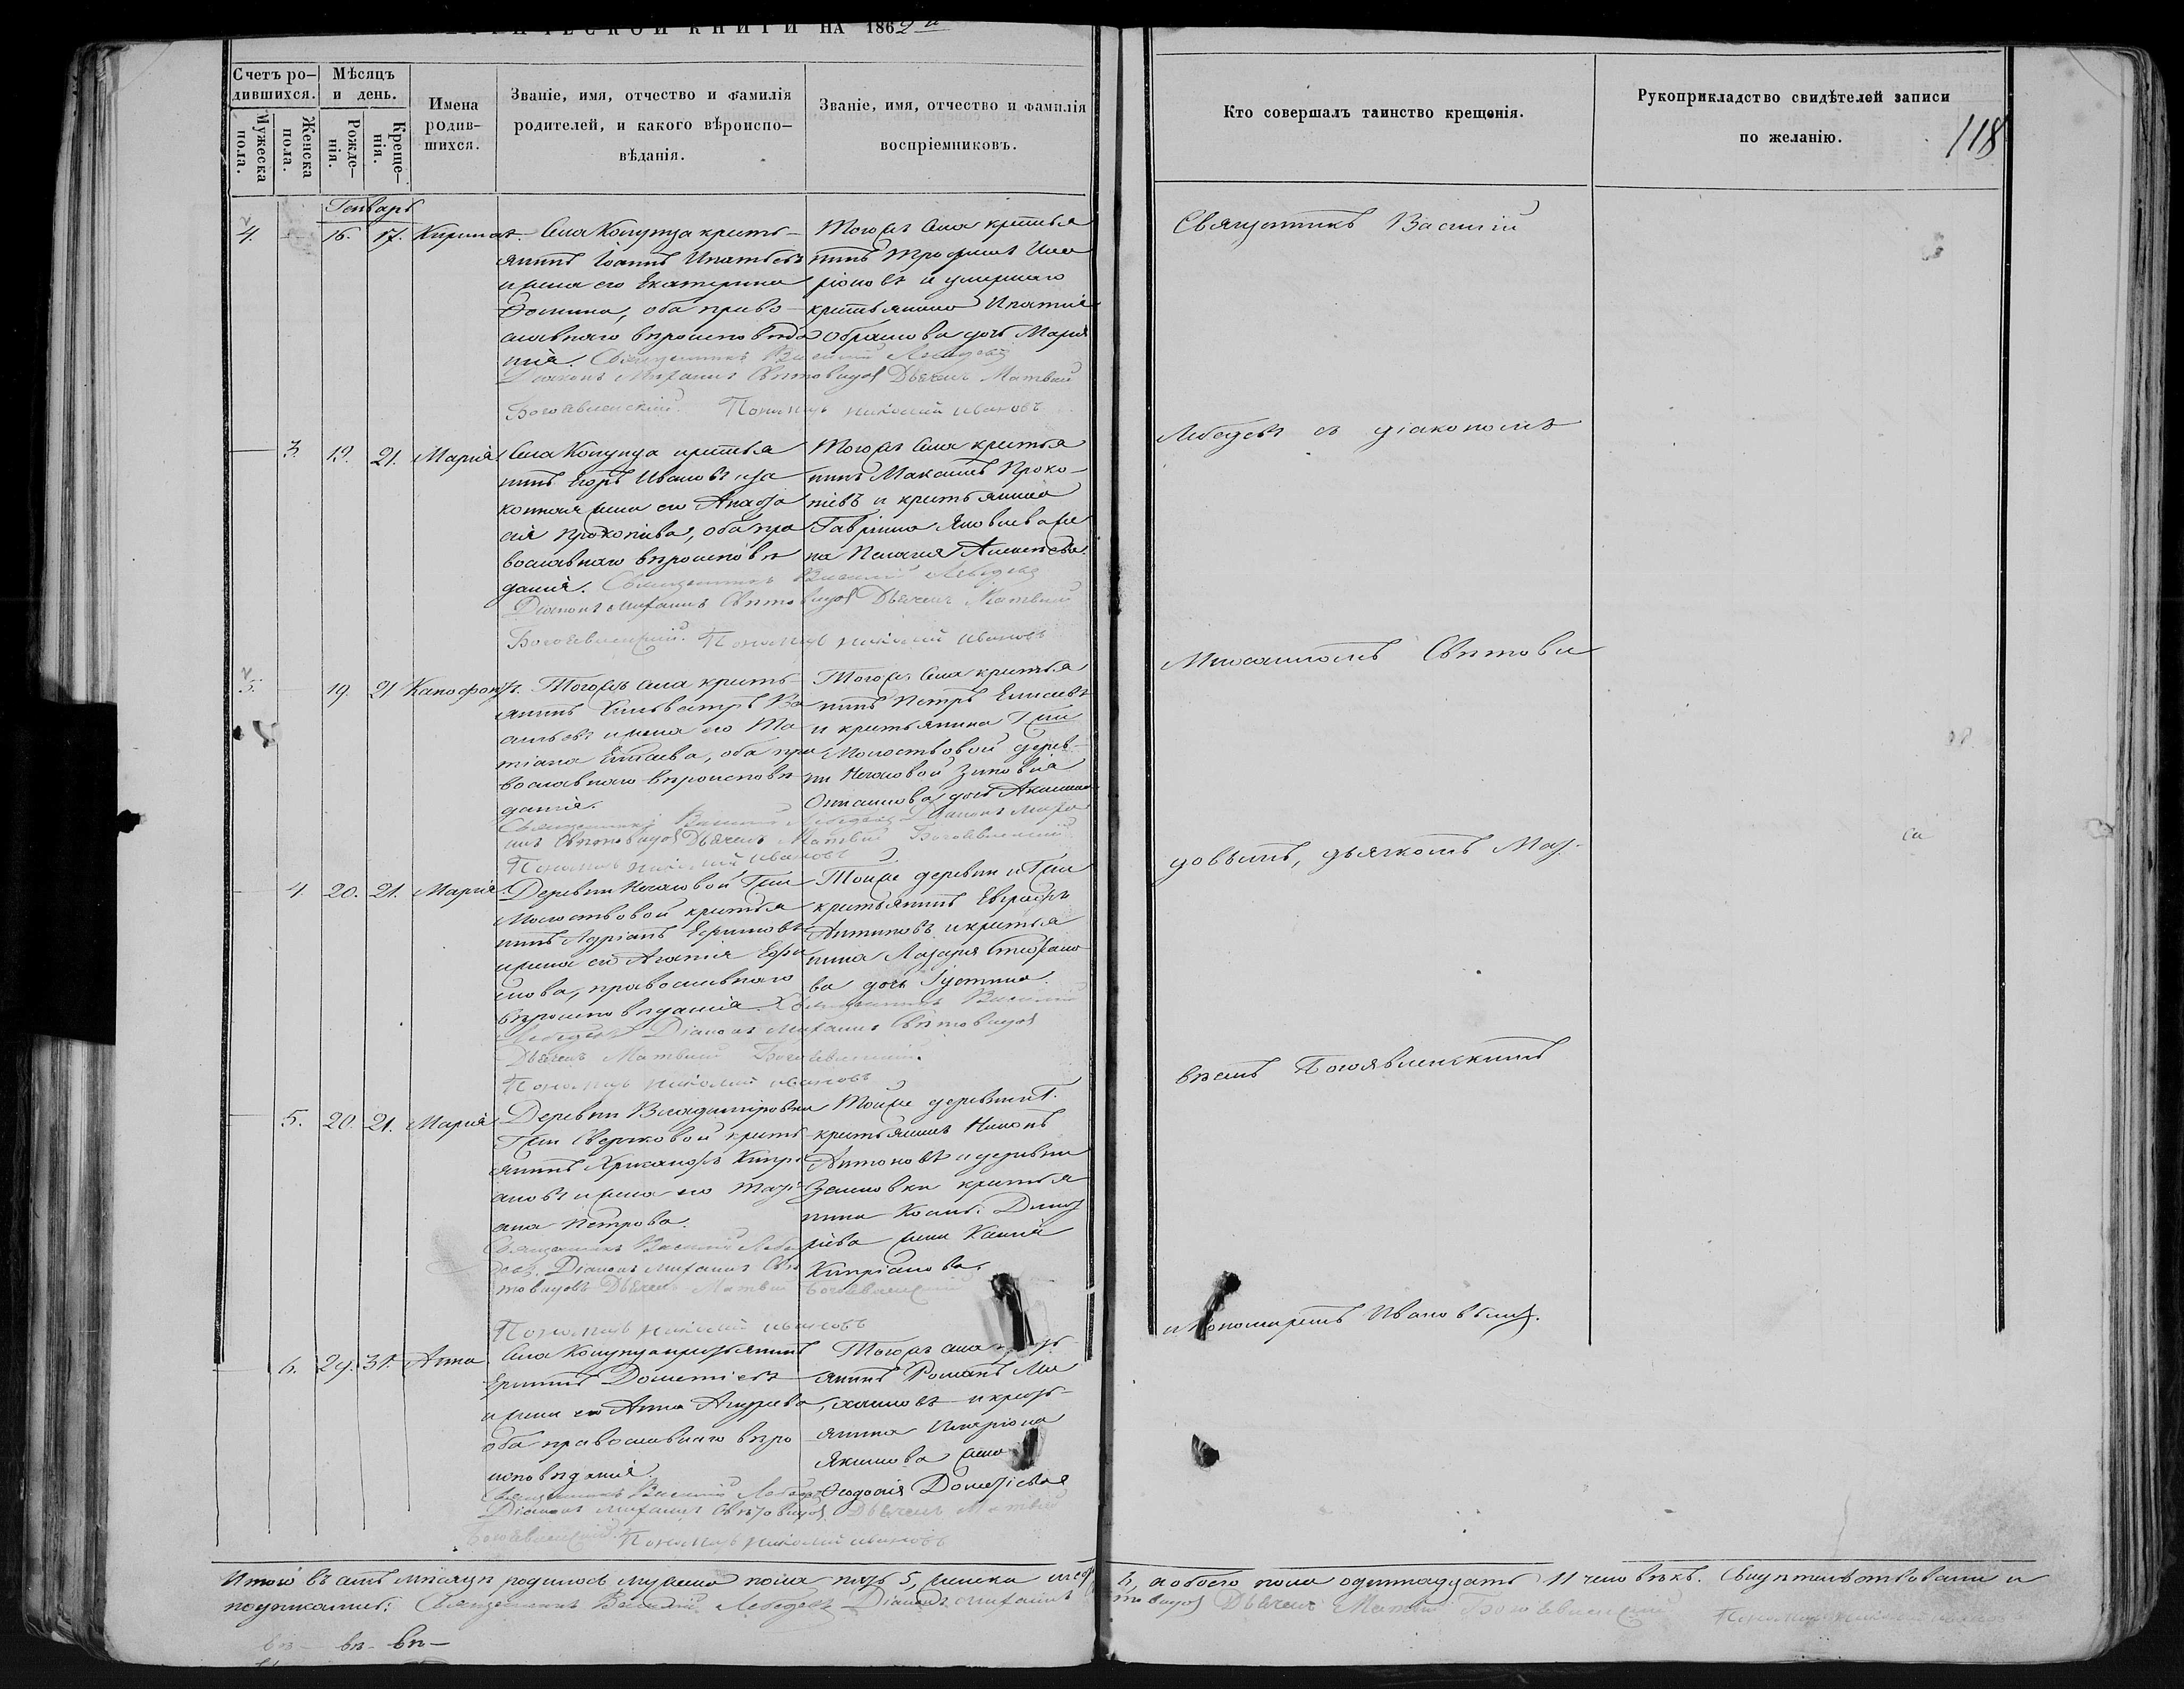 МЕТРИЧЕСКОЙ КНИГИ НА 1862 й
Счетъ ро-
дившихся.
Мужеска
пола.
Женска
пола.
Мѣсяцъ
и день.
Рожде-
нія.
Креще-
нія.
Имена
родив-
шихся.
Званіе, имя, отчество и фамилія
родителей, и какого вѣроиспо-
вѣданія.
Званіе, имя, отчество и фамилія
воспріемниковъ.
Кто совершалъ таинство крещенія.
Рукоприкладство свидѣтелей записи
по желанію.
118
Генварь
4. 16. 17. Кириллъ.
Села крестья-
янинъ Іоаннъ Ипатьевъ
и жена его Екатерина
Фомина, оба право-
славнаго вѣроисповѣда
нія. Священникъ Василій Лебедевъ
Діаконъ Михаилъ Свѣтовидовъ Дьячекъ Матвей
Богоявленскій. Пономарь Николай Ивановъ
Тогожъ села крестья
нинъ Трофимъ Ила
ріоновъ и умершаго
крестьянина Ипатія
Абрамова дочь Марія
3. 19. 21. Марія.
Села крестья
нинъ Егоръ Ивановъ и за
конная жена его Анаста
сія Прокопіева, оба пра
вославнаго вѣроисповѣ
данія. Священникъ Василій Лебедевъ
Діаконъ Михаилъ Свѣтовидовъ Дьячекъ Матвей
Богоявленскій. Пономарь Николай Ивановъ
Тогожъ села крестья
нинъ Максимъ Проко-
піевъ и крестьянина
Гавріила Яковлева же
на Пелагія Алексѣева.
5. 19. 21
Тогожъ села кресть-
янинъ Сильвестръ Ва
сильевъ и жена его Та-
тіана Елисеева, оба пра
вославнаго вѣроисповѣ
данія.
Священникъ Василій Лебедевъ Діаконъ Миха
илъ Свѣтовидовъ Дьячекъ Матвей Богоявленскій
Пономарь Николай Ивановъ
Тогожъ села крестья
нинъ Петръ Елисеевъ
и крестьянина Г-жи
Молоствовой дерев-
ни Зиновія
дочь Акилина
4. 20. 21. Марія.
Деревни Г-жи
Молоствовой крестья
нинъ Адріанъ
и жена его Агапія Ефи
мова, православнаго
вѣроисповѣданія. Священникъ Василій
Лебедевъ Діаконъ Михаилъ Свѣтовидовъ
Дьячекъ Матвей Богоявленскій.
Пономарь Николай Ивановъ
Тойже деревни и Г-жи
крестьянинъ Евграфъ
Антиповъ и крестья
нина Лазаря Стефано
ва дочь Іустина.
5. 20. 21. Марія.
Деревни Владиміровки
Г-жи кресть-
янинъ Хрисанфъ Кипрі
ановъ и жена его Таті
ана Петрова.
Священникъ Василій Лебе
девъ. Діаконъ Михаилъ Свѣ
товидовъ Дьячекъ Матвей Богоявленскій
Пономарь Николай Ивановъ
Тойже деревни Г.
крестьянинъ Никонъ
Антоновъ и деревни
крестья
нина Косьм. Дмит
ріева жена Ксенія
Кипріанова.
6. 29. 31. Анна
Села крестьянинъ
Дометіевъ
и жена его Анна Андреева
оба православнаго вѣро
исповѣданія.
Священникъ Василій Лебедевъ
Діаконъ Михаилъ Свѣтовидовъ Дьячекъ Матвей
Богоявленскій. Пономарь Николай Ивановъ
Тогожъ села крестъ-
янинъ Романъ Ми
хаиловъ и кресть-
янина Иларіона
Якимова жена
Ѳеодосія Дометіева
Священникъ Василій
Лебедевъ съ діакономъ
Михаиломъ Свѣтови
довымъ, дьячкомъ Мат-
вѣемъ Богоявленскимъ
и Пономаремъ Ивановымъ.
Итого въ семъ мѣсяцѣ родилось мужеска пола пять 5, женска шесть 6, а обоего пола одиннадцать 11 человѣкъ. Свидѣтельствовали и
подписались: Священникъ Василій Лебедевъ Діаконъ Михаилъ Свѣтовидовъ Дьячекъ Матвей Богоявленскій Пономарь Николай Ивановъ
вѣ- вѣ- вѣ-